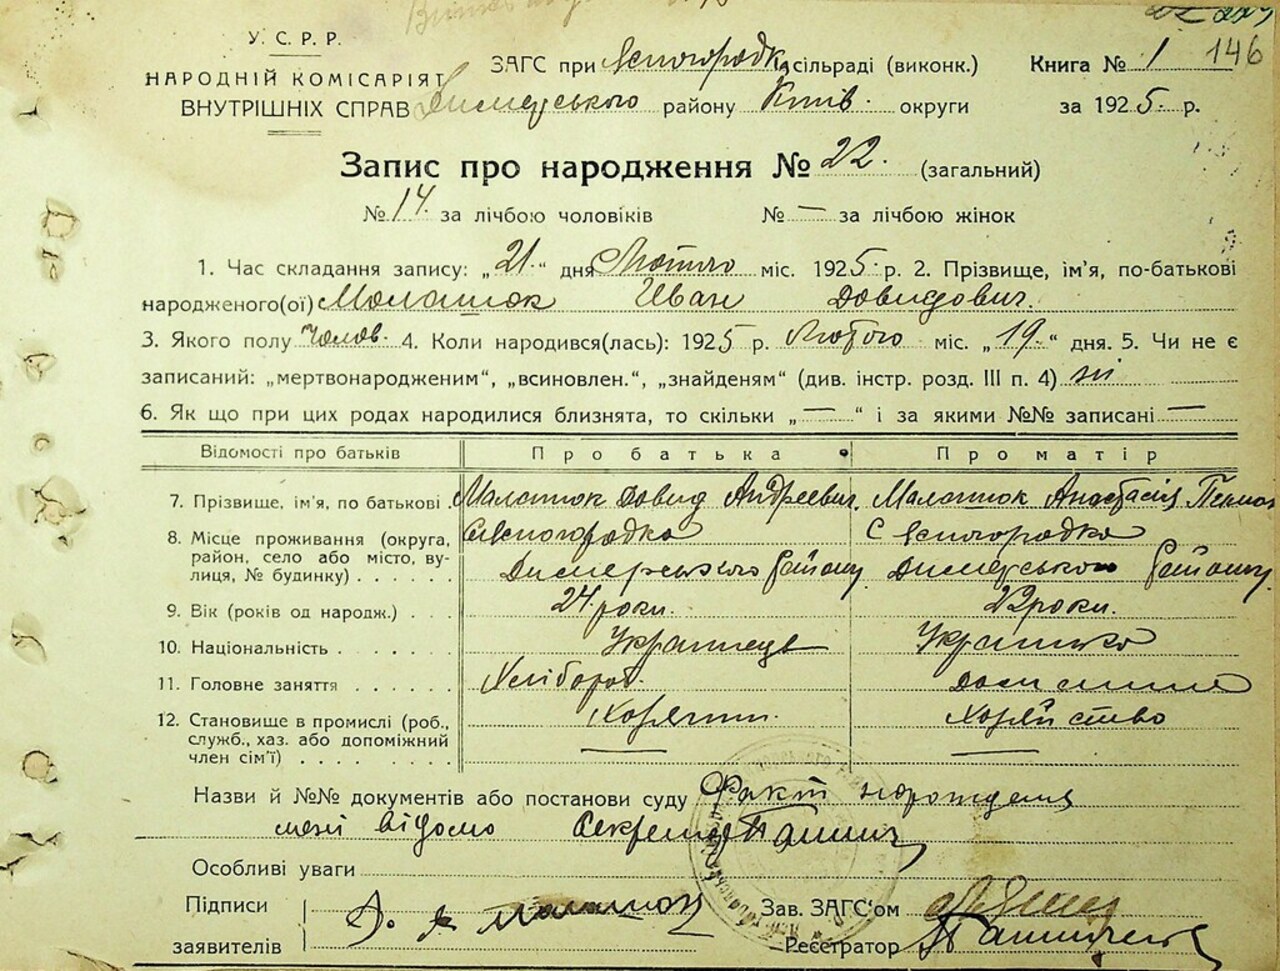 У. С. Р. Р.
НАРОДНІЙ КОМІСАРІЯТ
ВНУТРІШНІХ СПРАВ
ЗАГС при Ясногородк. сільраді (виконк.) Книга № 1 146
Димерського району Київ. округи за 1925 р.
Запис про народження № 22. (загальний)
№ 14. за лічбою чоловіків № — за лічбою жінок
1. Час складання запису: „21." дня Лютого міс. 1925 р. 2. Прізвище, ім'я, по-батькові
народженого(ої) Малашок Иван Довидович.
3. Якого полу Чолов. 4. Коли народився(лась): 1925 р. Лютого міс. „19." дня. 5. Чи не є
записаний: „мертвонародженим", „всиновлен.", „знайденям" (див. інстр. розд. III п. 4) ні
6. Як що при цих родах народилися близнята, то скільки „—" і за якими №№ записані —
Відомості про батьків Про батька Про матір
7. Прізвище, ім'я, по батькові Малашок Довид Андреевич. Малашок Анастасія
8. Місце проживання (округа, Ясногородка С Ясногородка
район, село або місто, ву-
лиця, № будинку) . . . . . . Димерського Району Димерського Району
9. Вік (років од народж.) . . . 24 роки. 22 роки.
10. Національність . . . . . . Украінець Украінка
11. Головне заняття . . . . . . Хлібороб. Домашнє
12. Становище в промислі (роб., Хозяїн. Хозяйство
служб., хаз. або допоміжний — —
член сім'ї) . . . . . . . .
Назви й №№ документів або постанови суду Факт нарождения
мені відомо Секретар
Особливі уваги
Підписи Зав. ЗАГС'ом
заявителів Реєстратор